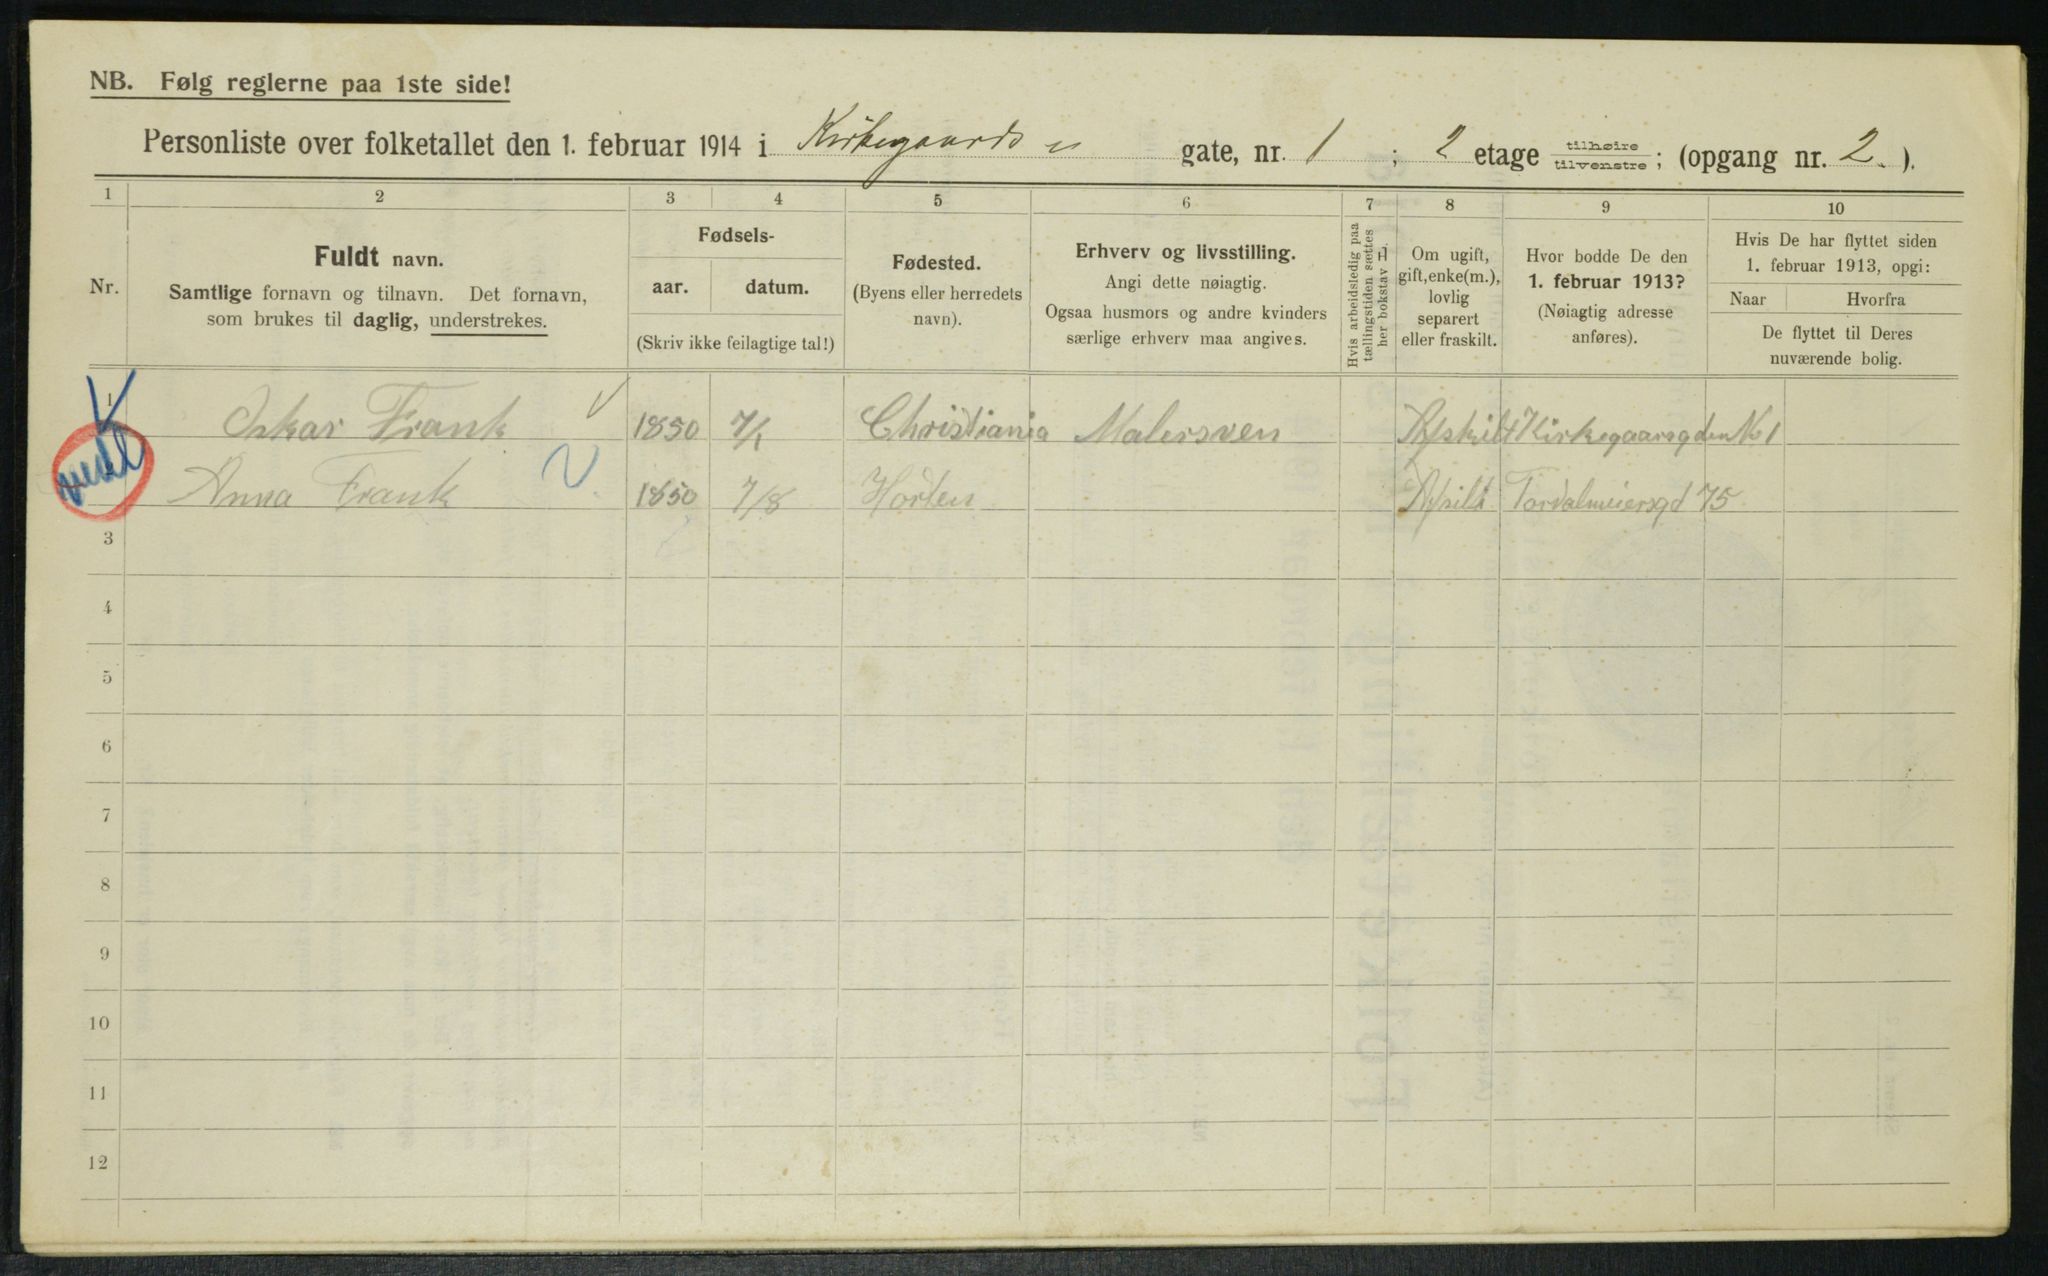 NB. Følg reglerne paa 1ste side!
Personliste over folketallet den 1. februar 1914 i Kirkegaards " gate, nr. 1 ; 2 etage tilhøire tilvenstre ; (opgang nr. 2. ).
1 2 3 4 5 6 7 8 9 10
Nr.
Fuldt navn.
Samtlige fornavn og tilnavn. Det fornavn,
som brukes til daglig, understrekes.
Fødsels-
aar. datum.
(Skriv ikke feilagtige tal!)
Fødested.
(Byens eller herredets
navn).
Erhverv og livsstilling.
Angi dette nøiagtig.
Ogsaa husmors og andre kvinders
særlige erhverv maa angives.
Hvis arbeidsledig paa
tællingstiden sættes
her bokstav L.
Om ugift,
gift, enke(m.),
lovlig
separert
eller fraskilt.
Hvor bodde De den
1. februar 1913?
(Nøiagtig adresse
anføres).
Hvis De har flyttet siden
1. februar 1913, opgi:
Naar Hvorfra
De flyttet til Deres
nuværende bolig.
1 Oskar Frank 1850 7/1 Christiania Malersven Afskilt Kirkegaarsgden No 1
2 Anna Frank 1850 7/8 Horten Afsilt Torvalmeiersgd 75
3
4
5
6
7
8
9
10
11
12